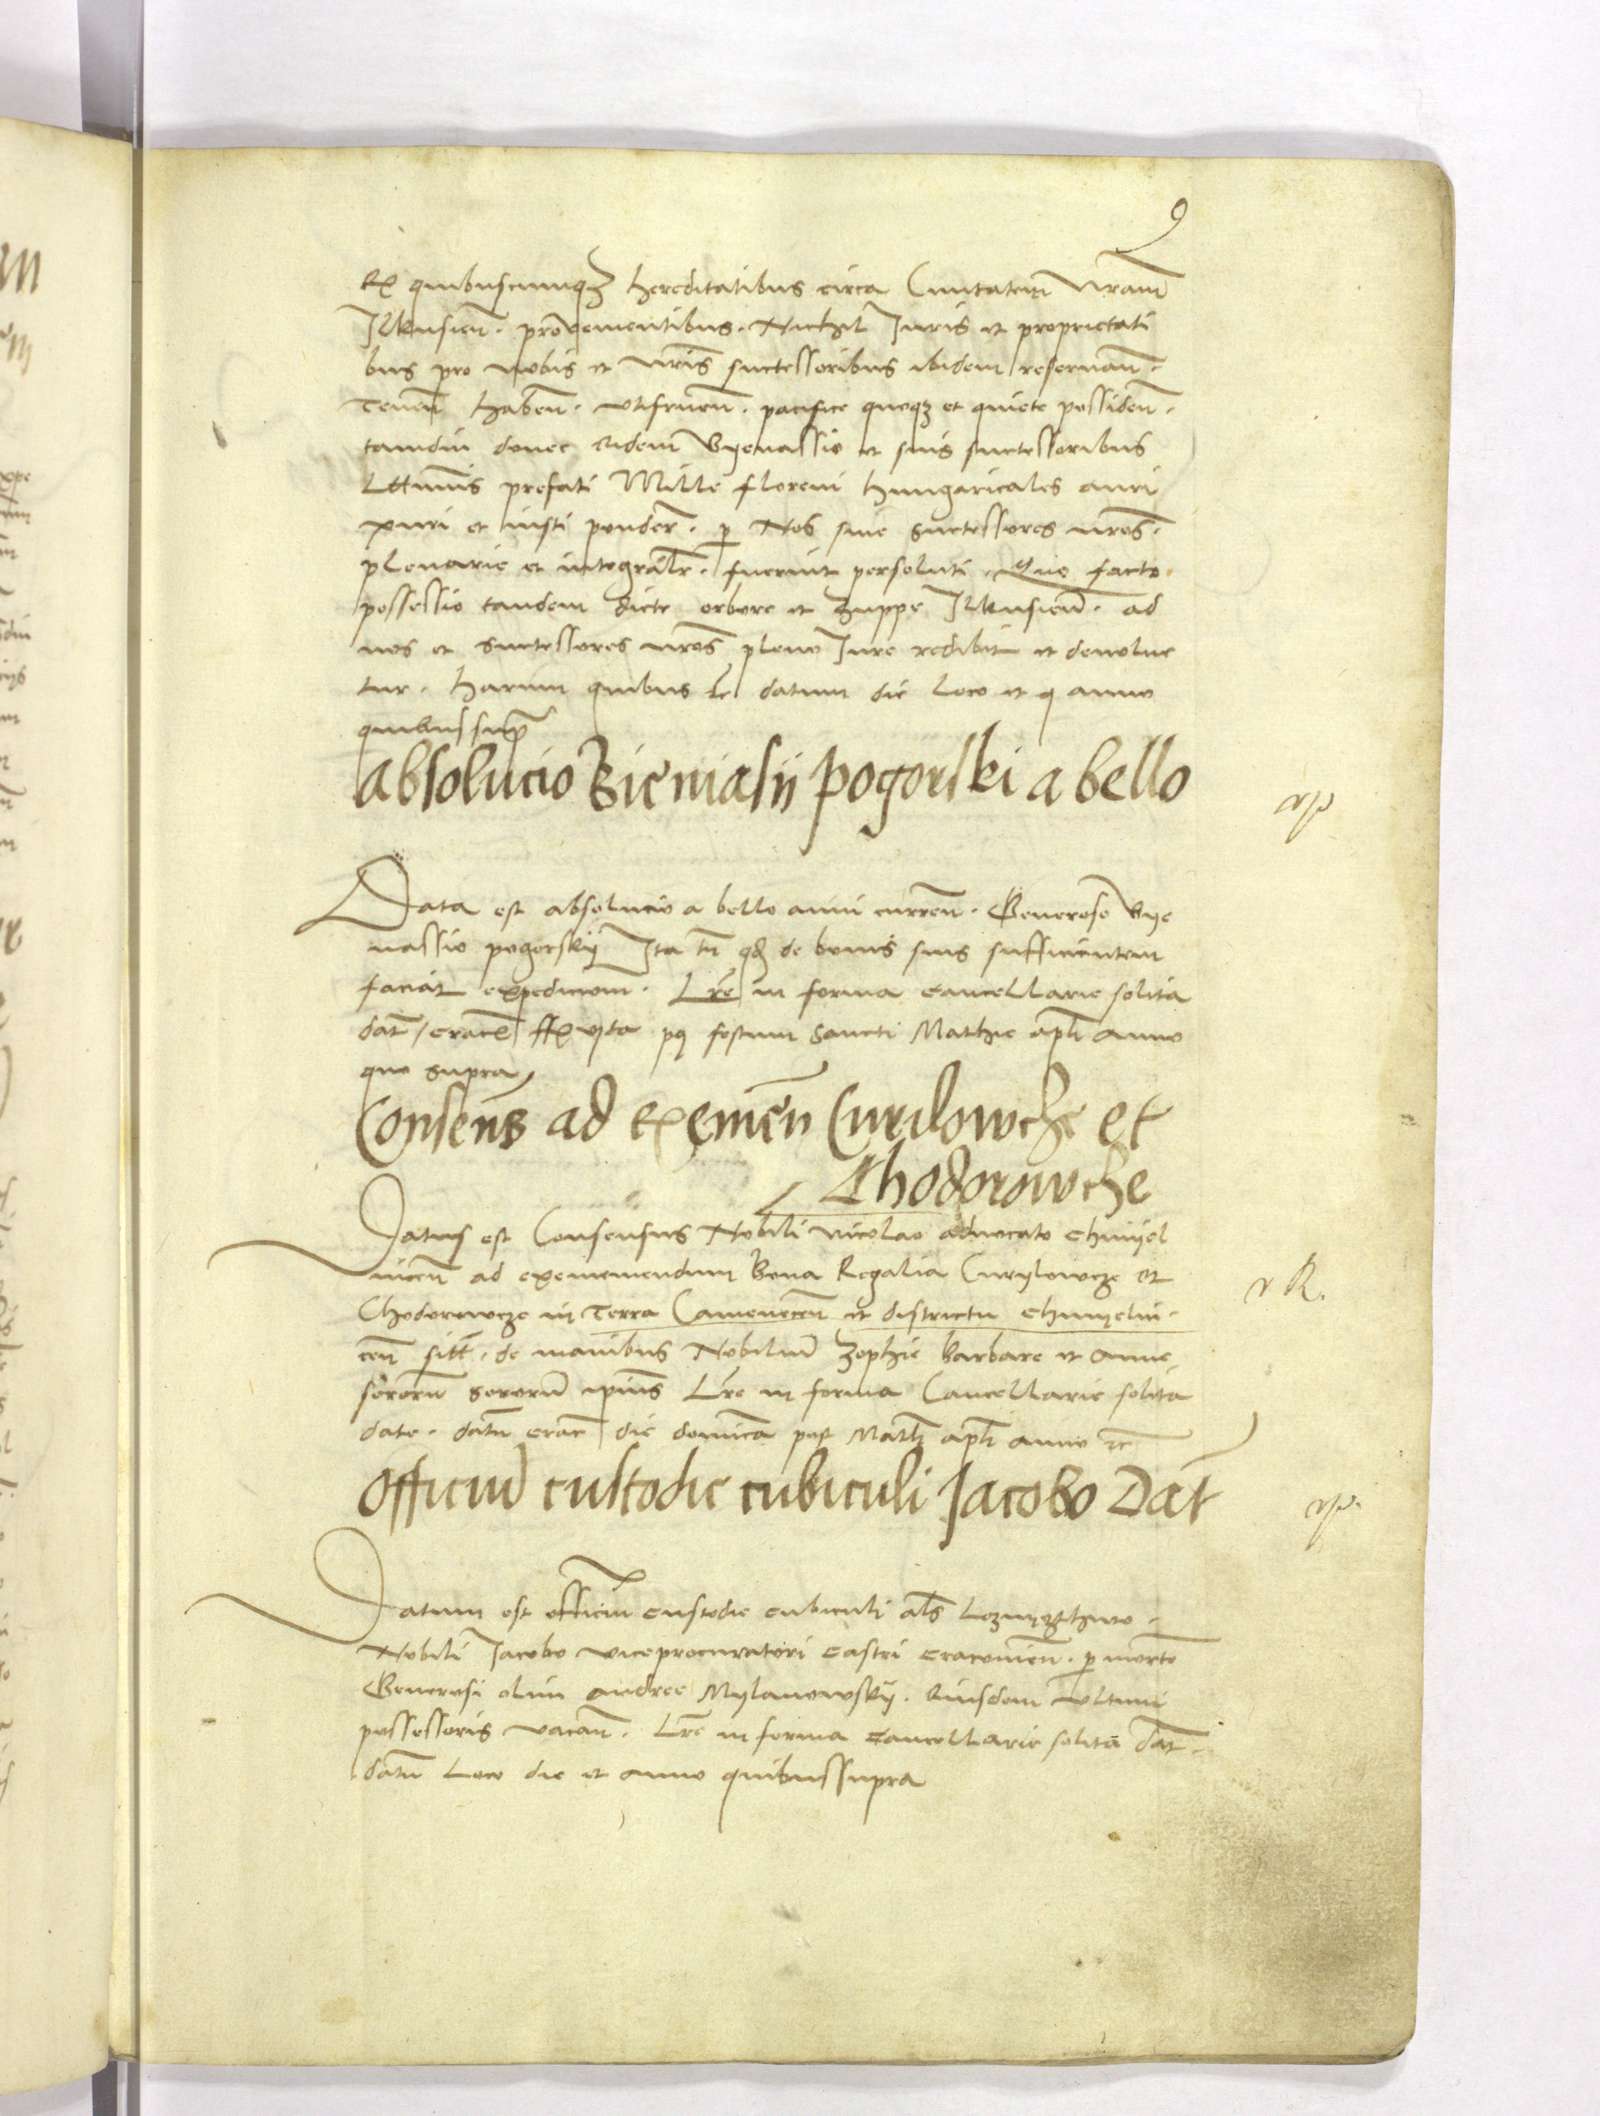 9
Ex quibuscumqz hereditatibus circa Civitatem nram
Ilkusien. provenientibus. Nichil Iuris et proprietati
bus pro nobis et nris successoribus ibidem reservan.
Tenen haben. utifruen. pacifice quoqz et quiete possiden.
tamdiu donec eidem Byenassio et suis successoribus
Lttimis prefati Mille floreni hungaricales auri
puri et iusti ponder. p Nos sive Successores nros.
plenarie et integralr. fuerint persoluti. Quo facto
possessio tandem dicte orbore et Zuppe Ilkusien. ad
nos et Successores nros pleno Iure redibit et devolve
tur. harum quibus &c datum die Loco et anno
quibussupra
absolucio Bieniasii Pogorski a bello
np
Data est absolucio a bello anni curren. Generoso Bye
nassio pogorskij Ita tn qd de bonis suis sufficientem
faciat expedicionem. Lre in forma cancellarie solita
dat Crace fferia vita pq festum Sancti Mathie apli Anno
quo supra
Consens ad exemen Curilowcze et
Chodorowcze
Datus est Consensus Nobili Nicolao advocato chmyel
nicen ad exememendum bona Regalia Curylowcze et
Chodorowcze in Terra Camenecen et districtu chmyelni.
cen sitt. de manibus Nobilium Zophie barbare et Anne
sororum Sororum ipius Lre in forma Cancellarie solita
date. datum crac die dominica post Mathi apli anno &c
n R.
Officium custodie cubiculi Jacobo Dat
np.
Datum est officium custodie cubiculi als
Nobili Jacobo viceprocuratori castri cracovien. p morte
Generosi olim andree Mylanowskij. eiusdem ultimi
possessoris vacan. Lre in forma cancellarie solita dat.
datum Loco die et anno quibussupra